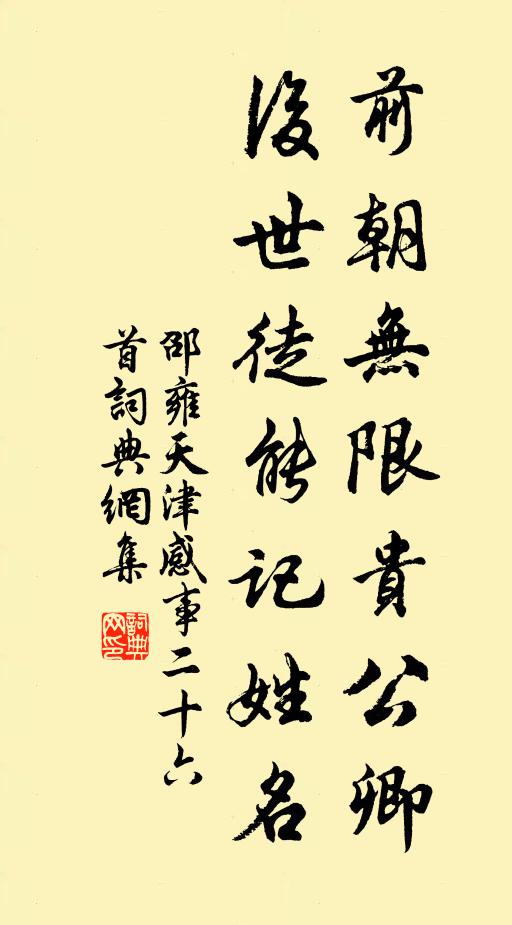 前朝無限貴公卿
後世徒能記姓名
邵雍天津感事二十六
首詞典網集
詞典
网印